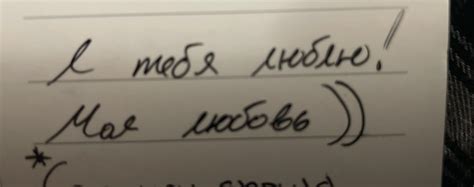 Я тебя люблю!
Моя любовь))
*(